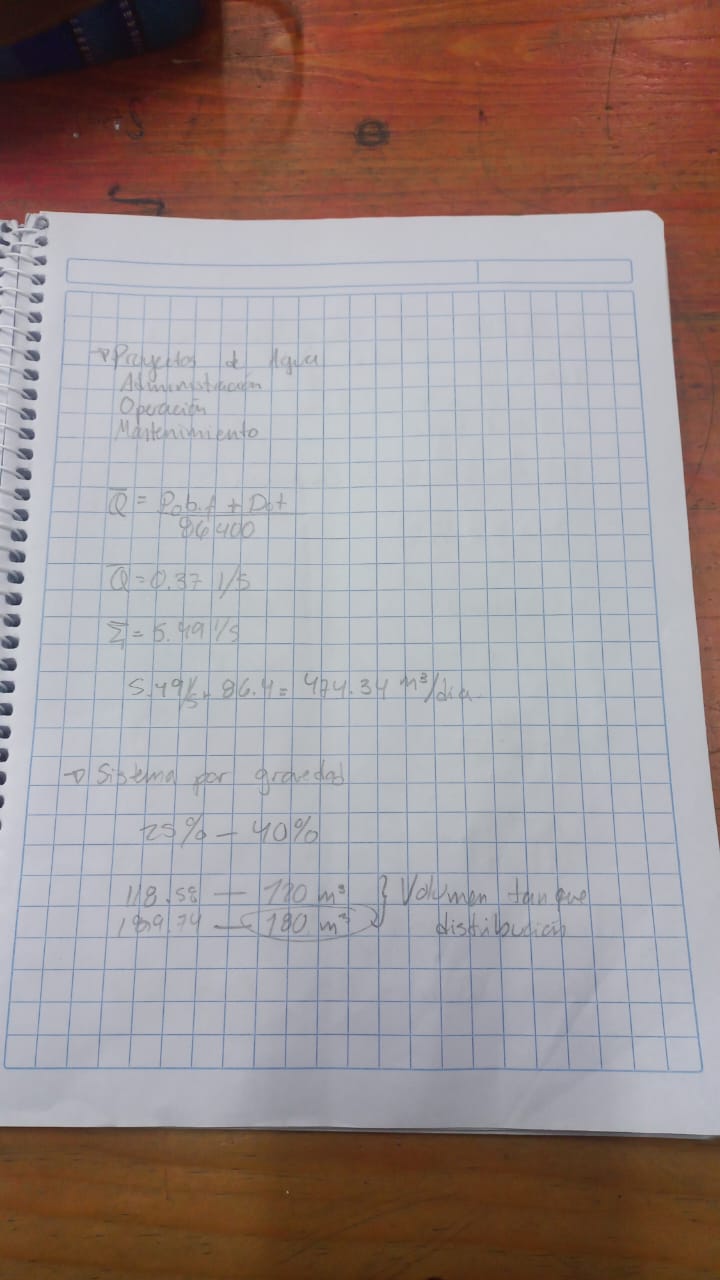 → Proyectos de Agua
Administración
Operación
Mantenimiento
Q̅ = Pob.f + Dot
86400
Q̅ = 0.37 l/s
Σ = 5.49 l/s
5.49 l/s * 86.4 = 474.34 m³/día
→ Sistema por gravedad
25% — 40%
118.58 — 120 m³ } Volumen tanque
189.74 — 180 m³ distribución